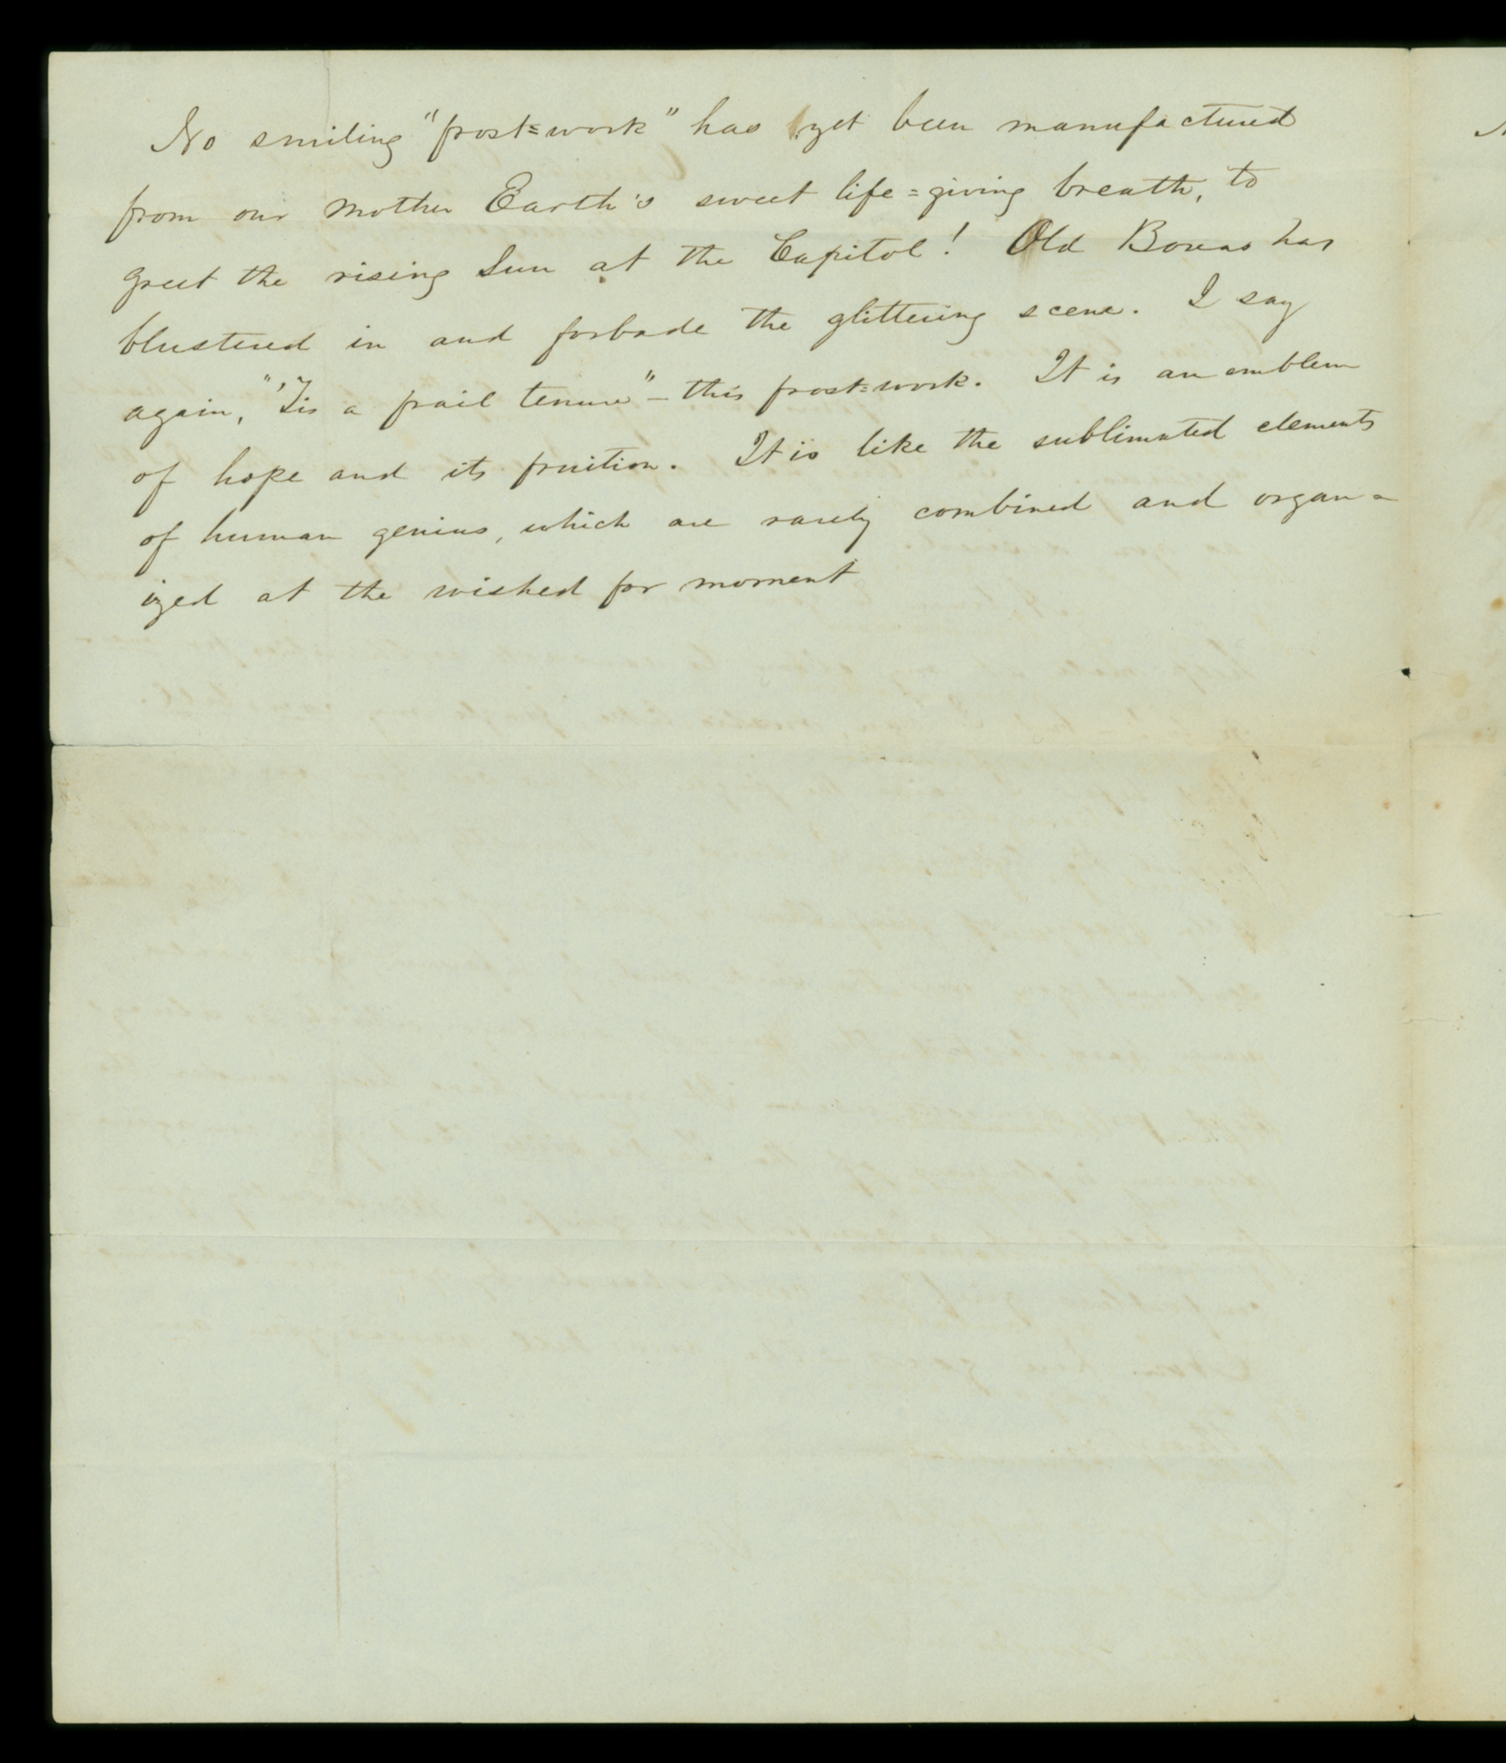 No smiling "frost=work" has yet been manufactured
from our Mother Earth's sweet life=giving breath, to
greet the rising Sun at the Capitol! Old Boreas has
blustered in and forbade the glittering scene. I say
again, "'Tis a frail tenure" – this frost=work. It is an emblem
of hope and its fruition. It is like the sublimated elements
of human genius, which are rarely combined and organ=
ized at the wished for moment